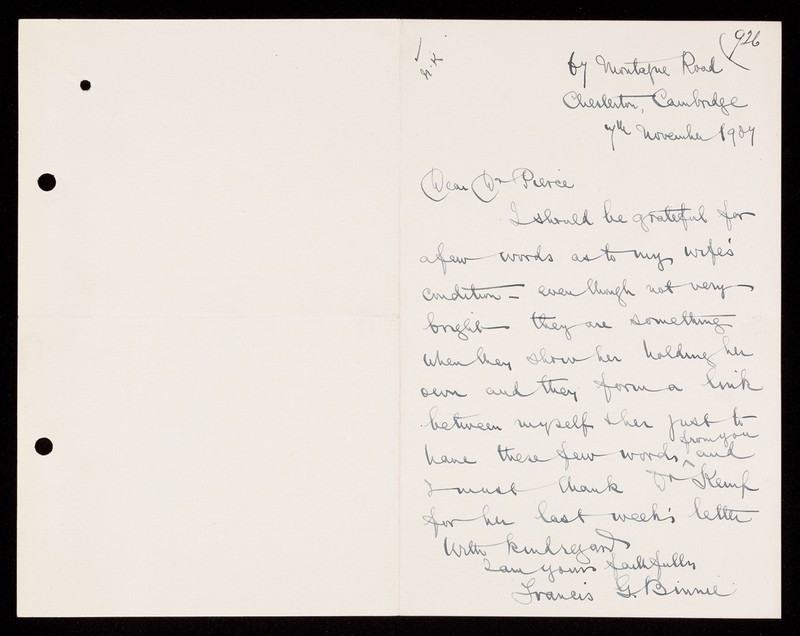 926
67 Montague Road
Chesterton, Cambridge
7th November 1907
Dear Dr Pierce
I should be grateful for
a few words as to my wife's
condition – even though not very
bright they are something
when they show her holding her
own and they form a link
between myself & her just to
have these few words from you and
I must thank Dr Kemp
for her last week's letter
With kind regards
I am yours faithfully
Francis G. Binnie